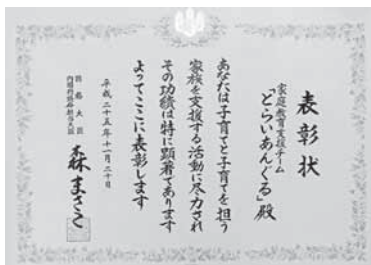 表彰状
家庭教育支援チーム
「とらいあんぐる」殿
あなたは子育てと子育てを担う
家族を支援する活動に尽力され
その功績は特に顕著であります
よってここに表彰します
平成二十五年十一月二十日
内閣府特命担当大臣
森まさこ